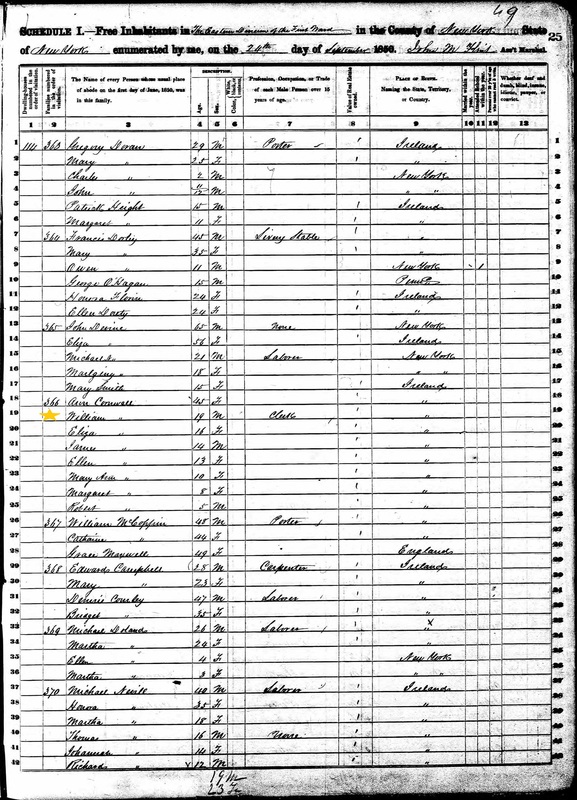 49
SCHEDULE I.—Free Inhabitants in The Eastern Division of the First Ward in the County of New York State
of New York enumerated by me, on the 24th day of September 1850. John M Ass't Marshal.
25
Dwelling-houses numbered in the order of visitation.
Families numbered in the order of visitation.
The Name of every Person whose usual place of abode on the first day of June, 1850, was in this family.
DESCRIPTION.
Age.
Sex.
Color,
Profession, Occupation, or Trade of each Male Person over 15 years of age.
Value of Real Estate owned.
PLACE OF BIRTH. Naming the State, Territory, or Country.
Married within the year.
Whether deaf and dumb, blind, insane, idiotic, pauper, or convict.
1 2 3 4 5 6 7 8 9 10 11 12 13
1 114 363 Gregory Doran 29 M Porter Ireland 1
2 Mary " 25 F " 2
3 Charles " 2 M New York 3
4 John " M " " 4
5 Patrick Height 15 M Ireland 5
6 Margaret " 11 F " 6
7 364 Francis 45 M Livery Stable " 7
8 Mary " 35 F " 8
9 Owen " 11 M New York 1 9
10 George O'Hagan 15 M 10
11 Honora 24 F Ireland 11
12 Ellen 24 F " 12
13 365 John Devine 65 M None New York 13
14 Eliza " 56 F Ireland 14
15 Michael 21 M Laborer New York 15
16 18 F " " 16
17 Mary Smith 15 F Ireland 17
18 366 Ann Cornwell 45 F " 18
19 William " 19 M Clerk " 19
20 Eliza " 16 F " 20
21 James " 14 M " 21
22 Ellen " 13 F " 22
23 Mary Ann " 10 F " 23
24 Margaret " 8 F " 24
25 Robert " 5 M " 25
26 367 William McCoppin 48 M Porter " 26
27 Catharine " 44 F " 27
28 Grace Maxwell 49 F England 28
29 368 Edward Campbell 28 M Carpenter Ireland 29
30 Mary " 23 F " 30
31 Dennis 47 M Laborer " 31
32 Bridget " 35 F " 32
33 369 Michael Doland 26 M Laborer " 33
34 Martha " 24 F " 34
35 Ellen " 4 F New York 35
36 Martha " 3 F " " 36
37 370 Michael Nevill 40 M Laborer Ireland 37
38 Honora " 35 F " 38
39 Martha " 18 F " 39
40 Thomas " 16 M None " 40
41 Johannah " 14 F " 41
42 Richard " x 12 M " 42
19 M
23 F